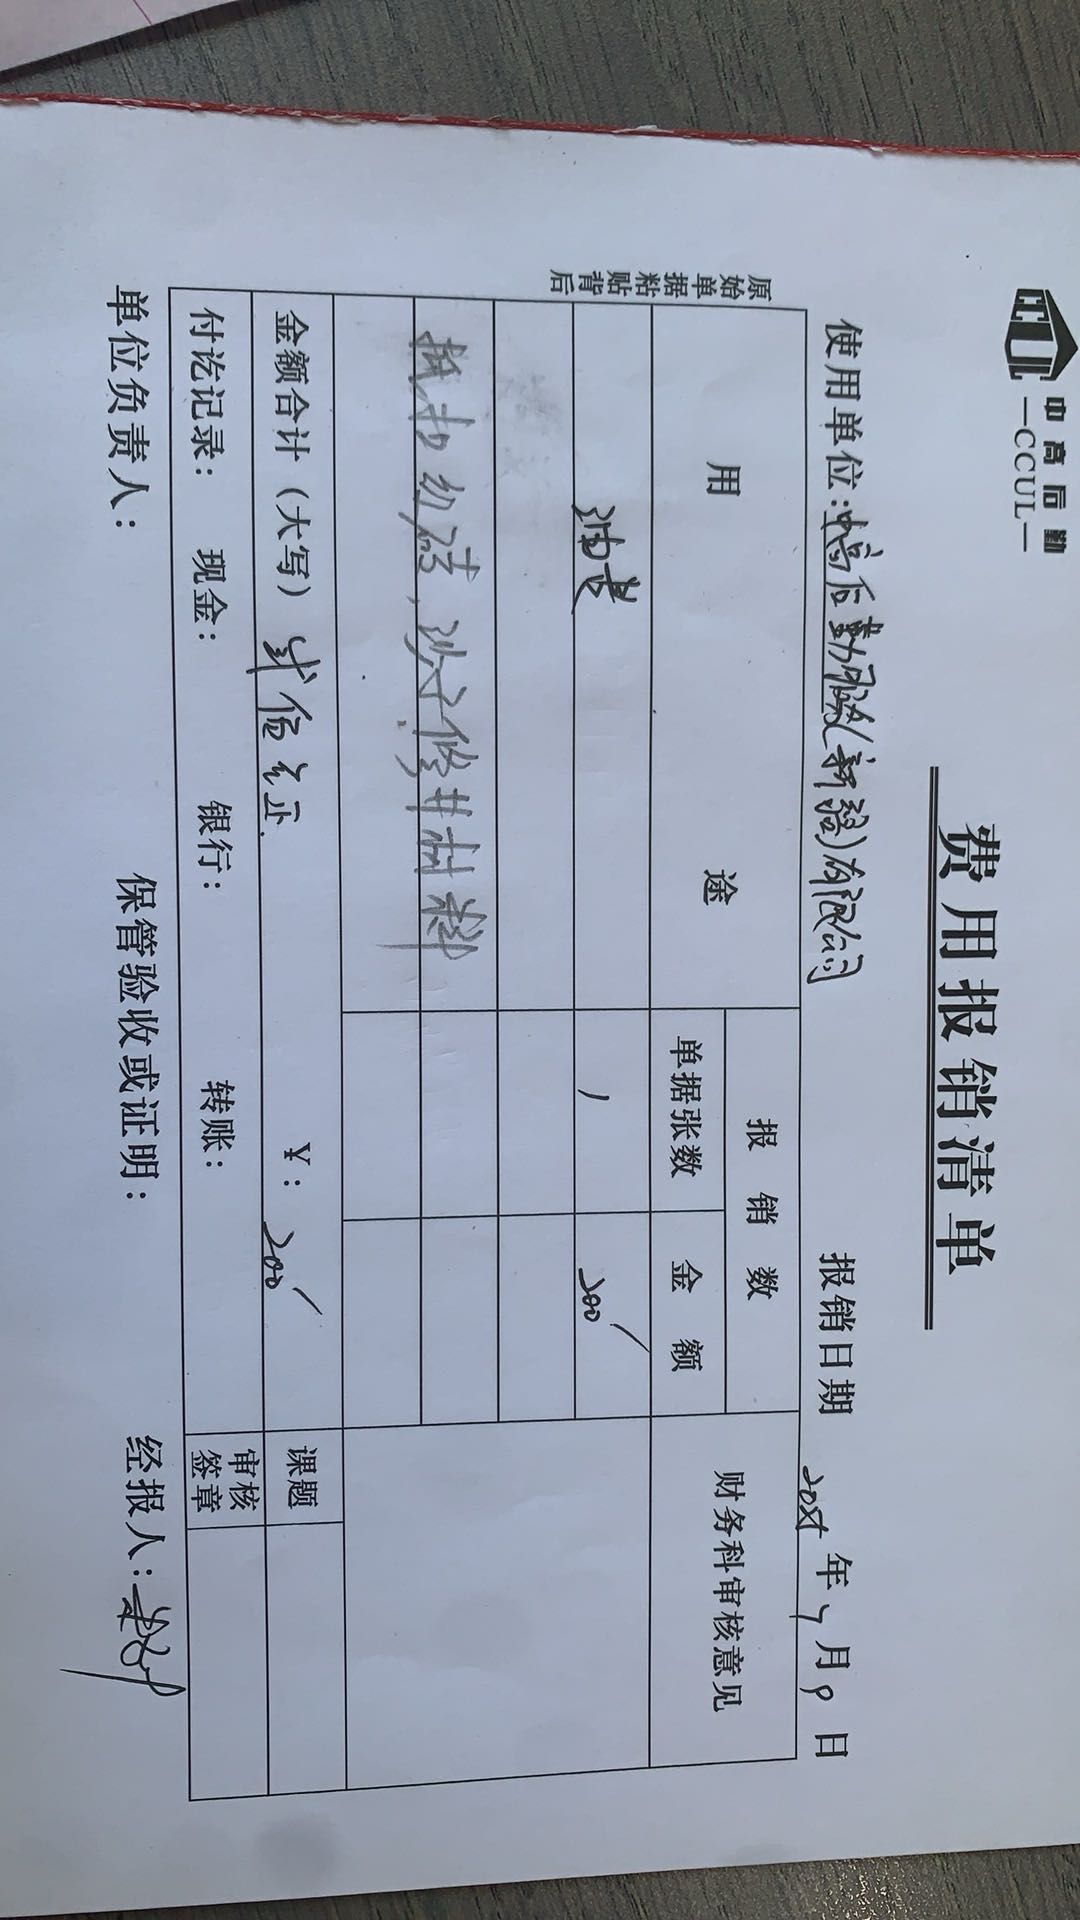 中高后勤
—CCUL—
费用报销清单
使用单位:中高后勤服务(新疆)有限公司 报销日期 年 7 月 9 日
用 途 报 销 数 财务科审核意见
单据张数 金 额
油费 1 200
沙子修井材料
金额合计（大写） 贰佰元正. ¥: 200 课题
付讫记录: 现金: 银行: 转账: 审核签章
单位负责人: 保管验收或证明: 经报人:
原始单据粘贴背后